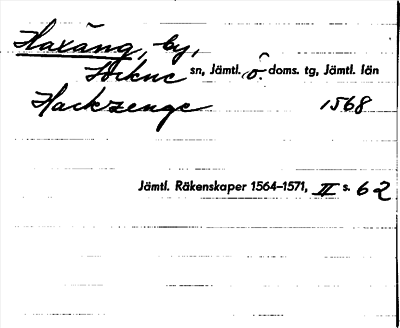 Haxäng, by,
Lockne sn, Jämtl. ö. doms. tg, Jämtl. län
Hackzenge 1568
Jämtl. Räkenskaper 1564–1571, II s. 62